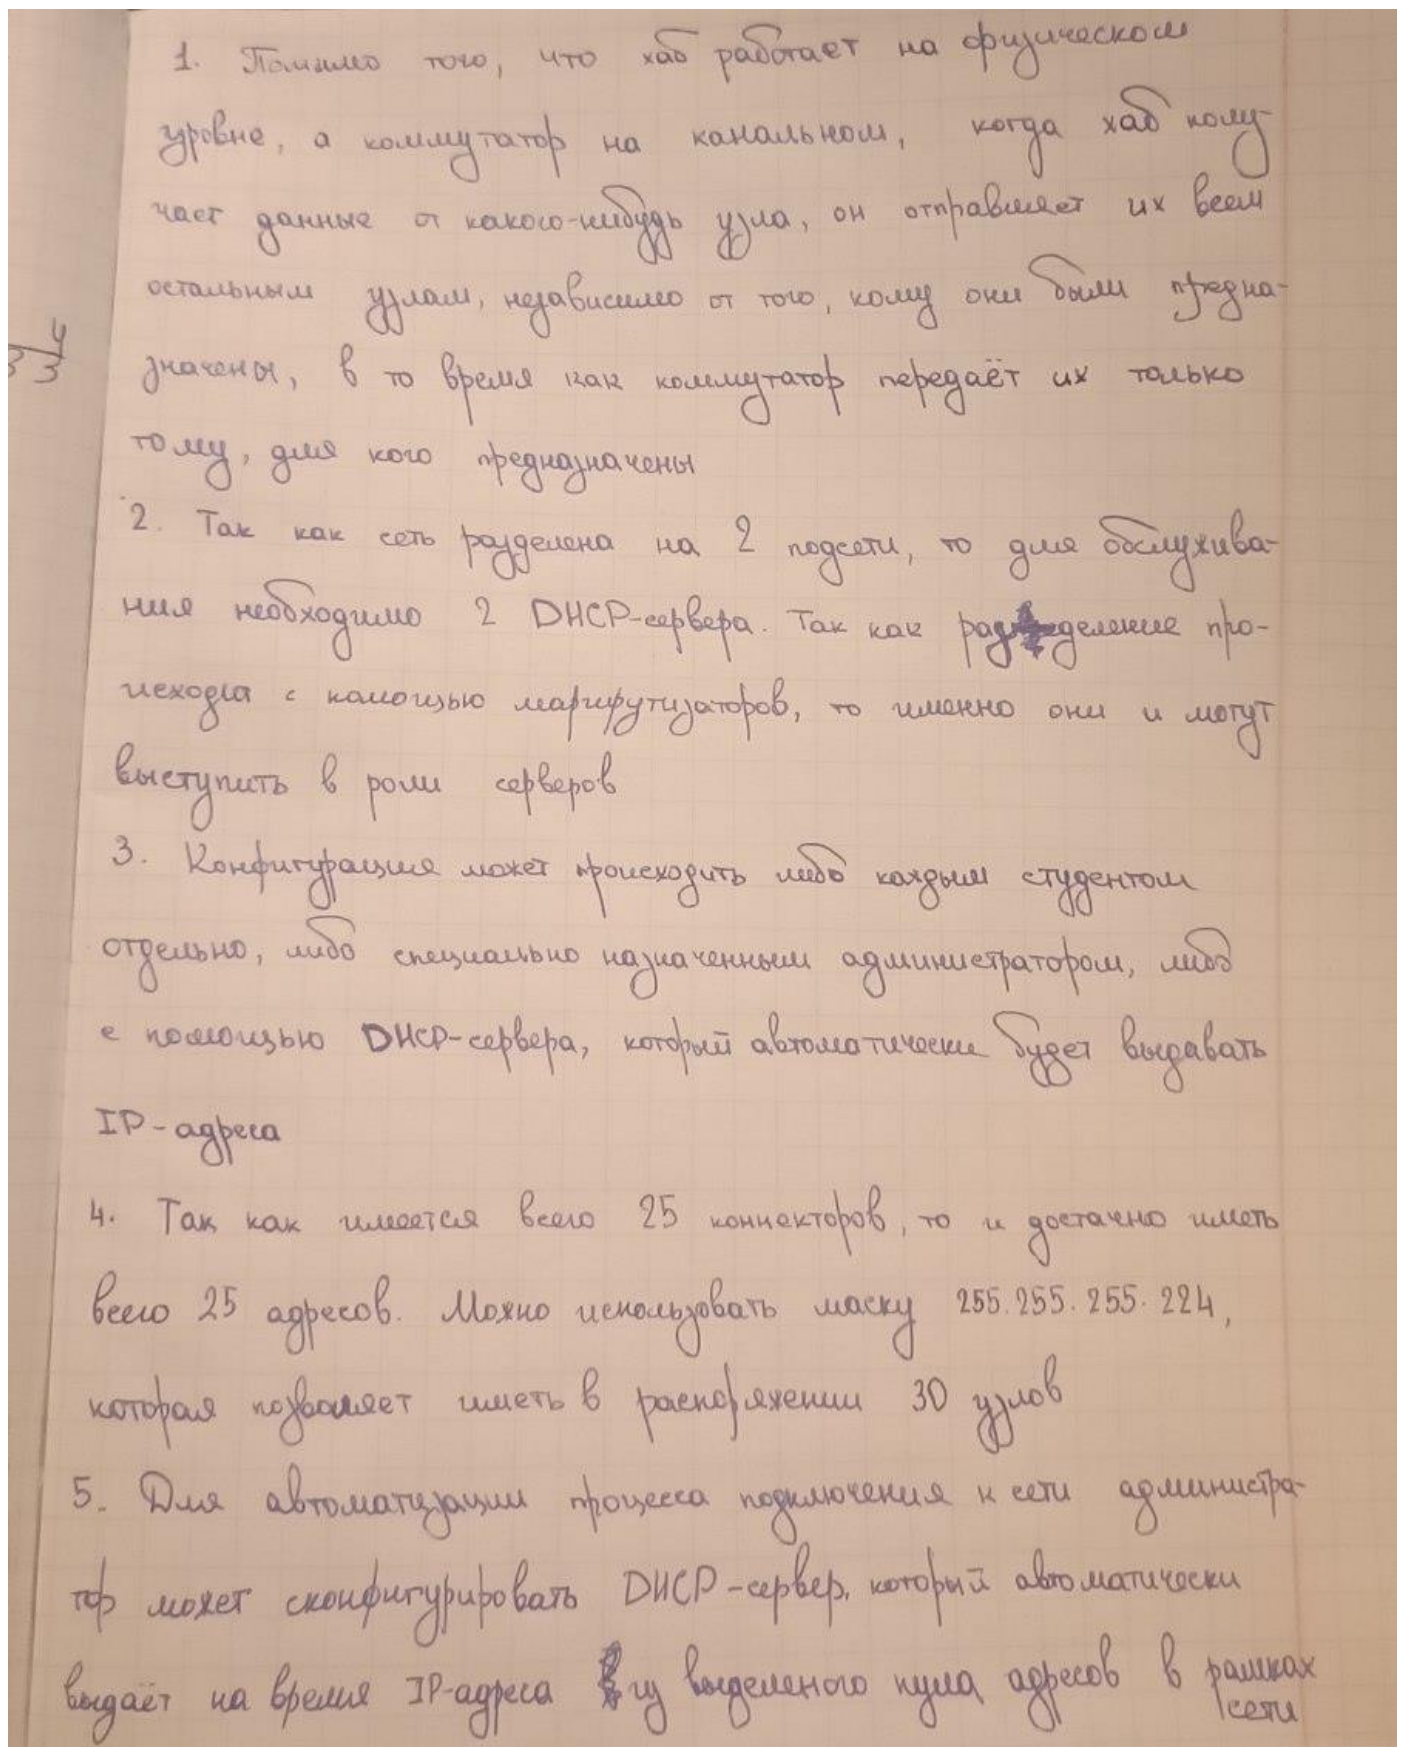 1. Помимо того, что хаб работает на физическом
уровне, а коммутатор на канальном, когда хаб полу-
чает данные от какого-нибудь узла, он отправляет их всем
остальным узлам, независимо от того, кому они были предна-
значены, в то время как коммутатор передаёт их только
тому, для кого предназначены
2. Так как сеть разделена на 2 подсети, то для обслужива-
ния необходимо 2 DHCP-сервера. Так как разделение про-
исходит с помощью маршрутизаторов, то именно они и могут
выступить в роли серверов
3. Конфигурация может происходить либо каждым студентом
отдельно, либо специально назначенным администратором, либо
с помощью DHCP-сервера, который автоматически будет выдавать
IP-адреса
4. Так как имеется всего 25 коннекторов, то и достачно иметь
всего 25 адресов. Можно использовать маску 255.255.255.224,
которая позволяет иметь в распоряжении 30 узлов
5. Для автоматизации процесса подключения к сети администра-
тор может сконфигурировать DHCP-сервер, который автоматически
выдаёт на время IP-адреса из выделеного пула адресов в рамках
сети